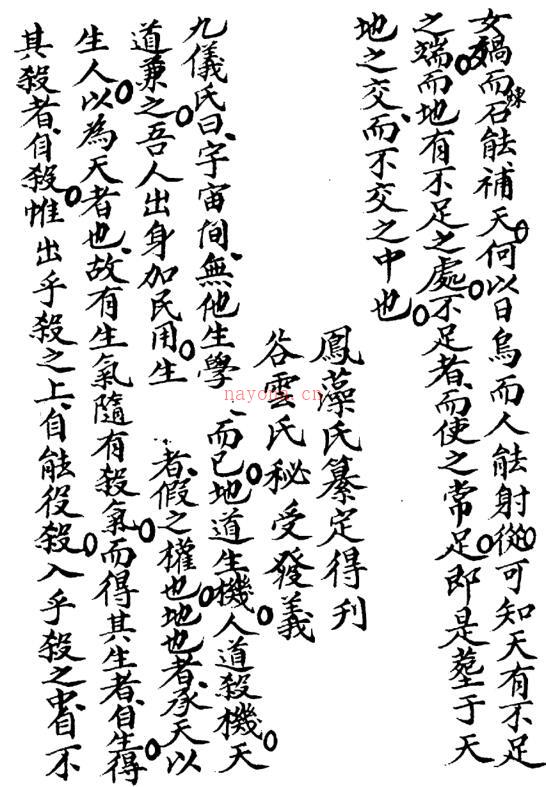 女媧而鍊石能補天何以日烏而人能射從可知天有不足
之端而地有不足之處不足者而使之常足即是塟于天
地之交而不交之中也
鳳藻氏纂定得刋
谷雲氏秘受發義
九儀氏曰字宙间無他生學、而已地道生機人道殺機天
道兼之吾人出身加民用生者假之權也地也者承天以
生人以為天者也故有生氣隨有殺氣而得其生者自生得
其殺者自殺惟出乎殺之上自能役殺入乎殺之中自不
nayona.cn